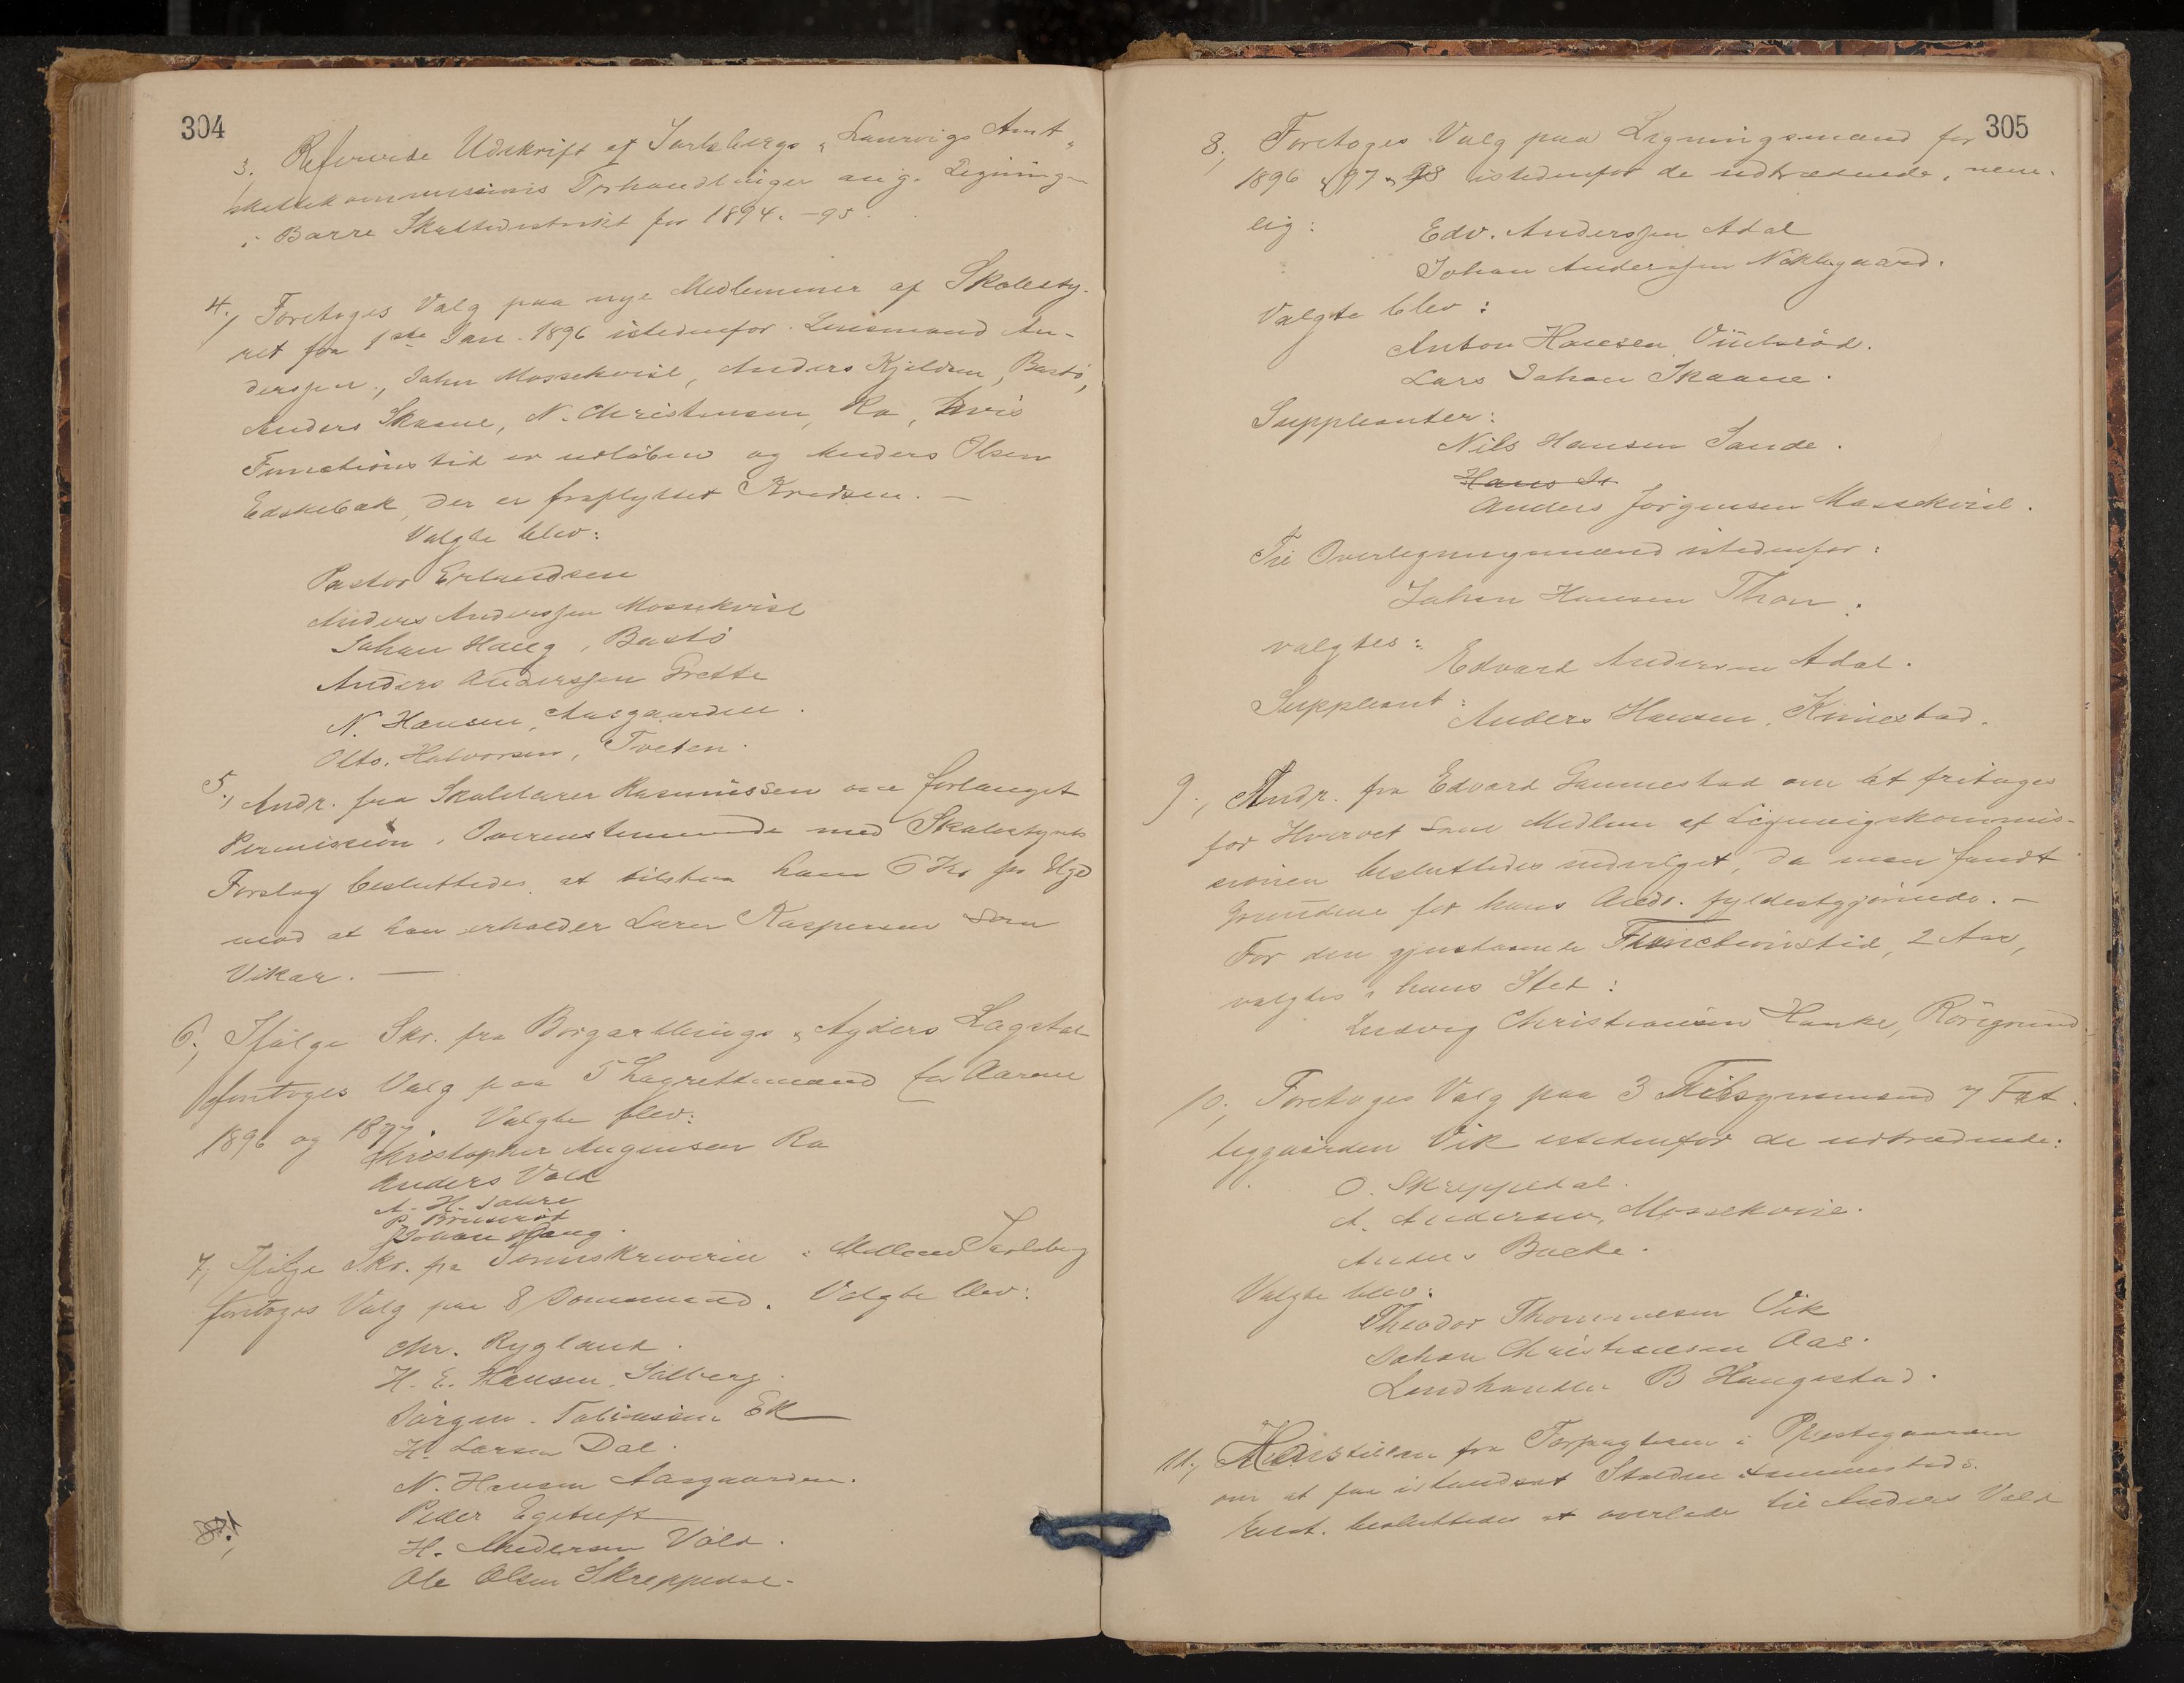 304
3. Refereredes Udskrift af Jarlsbergs & Laurvigs Amts
skattekommissions Forhandlinger ang. Ligningen
i Borre Skattedistrikt for 1894-95.
4., Foretoges Valg paa nye Medlemmer af Skolesty-
ret fra 1ste Jan. 1896 istedenfor Lensmand An-
derssen, John Mossekvist, Anders Kjeldsen, Bastö,
Anders Skaane, N. Christensen, Ra, hvis
Functionstid er udløben og Anders Olsen
Edskebæk, der er fraflyttet Kredsen. —
Valgte blev:
Pastor Erlandsen
Anders Anderssen Mossekvist
Johan Haug, Bastö
Anders Anderssen Grette
N. Hansen, Aasgaarden.
Otto Halvorsen, Tveten.
5., Andr. fra Skolelærer Rasmussen om forlænget
Permission. Overensstemmende med Skolestyrets
Forslag besluttedes at tilstaa ham 6 Kr pr Uge
mod at han erholder Lærer Kaspersen som
Vikar. —
6., Ifølge Skr. fra Borgarthings & Agders Lagstol
foretoges Valg paa 5 Lagrettemænd for Aarene
1896 og 1897. Valgte blev:
Christopher Mugensen Ra
Anders Vold
A. H. Sahre
P. Brunerød
Johan Haug.
7., Ifølge Skr. fra Sorenskriveren i Mellem Jarlsberg
foretoges Valg paa 8 Domsmænd. Valgte blev:
Chr. Rygland.
H. E. Hansen, Solberg.
Jörgen Tobiassen Ek
H. Larsen Dal.
N. Hansen Aasgaarden.
Peder Egetuft
H. Andersen Vold.
Ole Olsen Skreppedal.
8.,
305
8., Foretoges Valg paa Ligningsmænd for
1896 & 97 & 98 istedenfor de udtrædende, nem-
lig:
Edv. Anderssen Adal
Johan Anderssen Nøklegaard.
Valgte blev:
Anton Hansen Viulsröd.
Lars Johan Skaane.
Suppleanter:
Nils Hansen Sande.
Hans
Anders Jörgensen Mossekvist.
Til Overligningsmænd istedenfor:
Johan Hansen Thon.
valgtes:
Edvard Andersen Adal.
Suppleant:
Anders Hansen, Knivestad.
9., Andr. fra Edvard Gannestad om at fritages
for Hvervet som Medlem af Ligningskommis-
sionen besluttedes indvilget, da man fandt
Grundene for hans Andr. fyldestgjörende. —
For den gjenstaaende Functionstid, 2 Aar,
valgtes i hans Sted:
Ludvig Christiansen Hanke, Röregrund
10., Foretoges Valg paa 3 Tilsynsmænd v/ Fat
tiggaarden Vik istedenfor de udtrædende:
O. Skreppedal.
A. Andersen, Mossekvist.
Anders Bakke.
Valgte blev:
Theodor Thommesen Vik
Johan Christiansen Aas.
Landhandler B Haugestad.
11., Henstillen fra Forpagteren i Præstegaarden
om at faa istandsat Stalden sammesteds.
Enst. besluttedes at overlade til Anders Vold